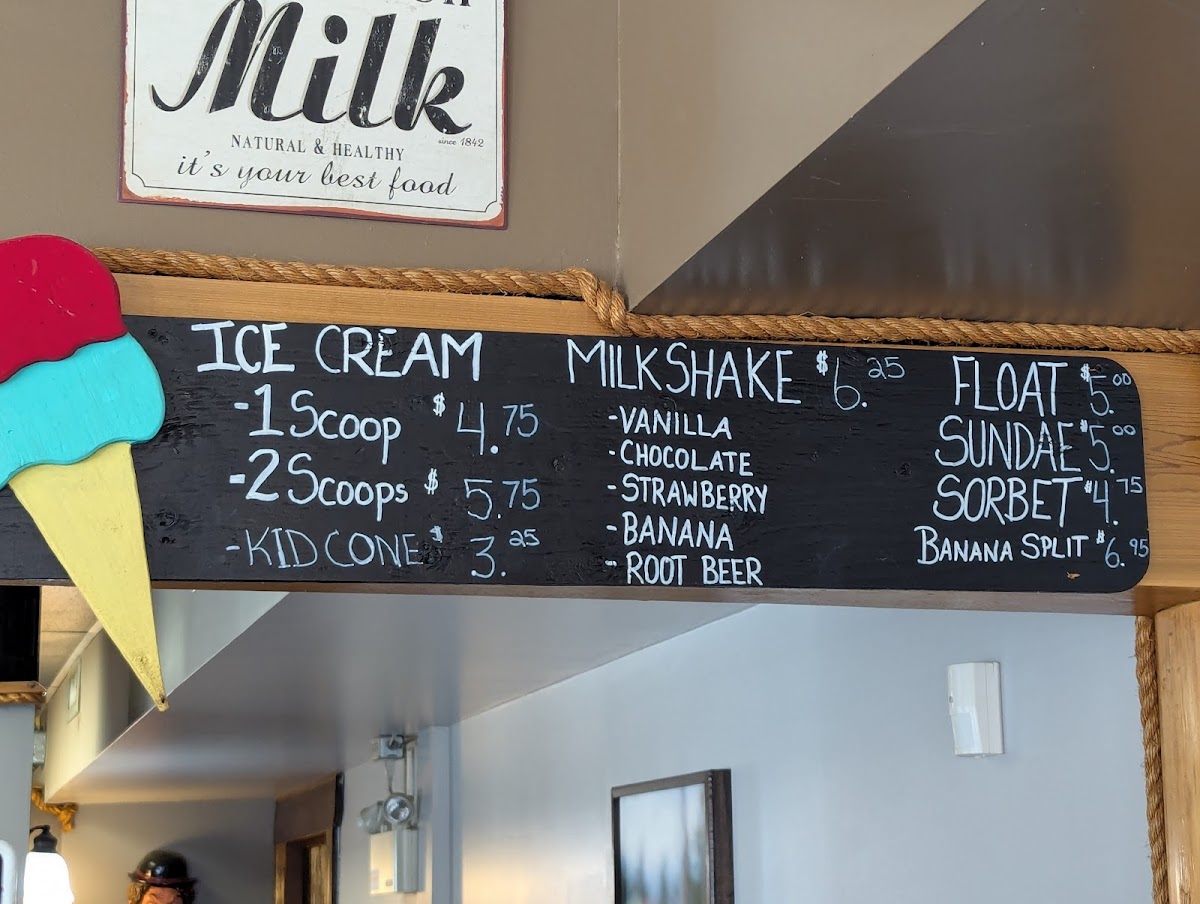 Milk
NATURAL & HEALTHY
since 1842
it's your best food
ICE CREAM
-1 Scoop $4.75
-2 Scoops $5.75
-KID CONE $3.25
MILKSHAKE $6.25
-VANILLA
-CHOCOLATE
-STRAWBERRY
-BANANA
-ROOT BEER
FLOAT $5.00
SUNDAE $5.00
SORBET $4.75
BANANA SPLIT $6.95